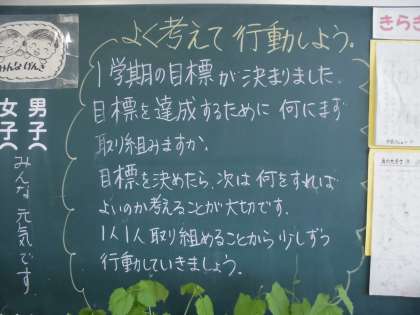 よく考えて行動しよう。
1学期の目標が決まりました。
目標を達成するために何にまず
取り組みますか。
目標を決めたら、次は何をすれば
よいのか考えることが大切です。
1人1人取り組めることから少しずつ
行動していきましょう。
みんなげんき
男子へ
女子へ
みんな元気です。
きらき